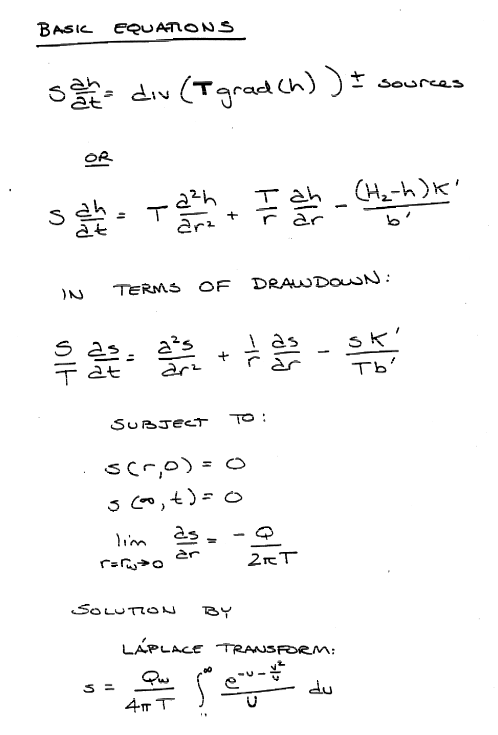 BASIC EQUATIONS
S ∂h/∂t = div (T grad(h)) ± sources
OR
S ∂h/∂t = T ∂²h/∂r² + T/r ∂h/∂r - (H₂-h)K'/b'
IN TERMS OF DRAWDOWN:
S/T ∂s/∂t = ∂²s/∂r² + 1/r ∂s/∂r - sK'/Tb'
SUBJECT TO:
s(r,0) = 0
s(∞,t) = 0
lim r=rω→0 ∂s/∂r = -Q/2πT
SOLUTION BY
LAPLACE TRANSFORM:
s = Qw/4πT ∫ ∞ e^(-u-v²/u)/u du